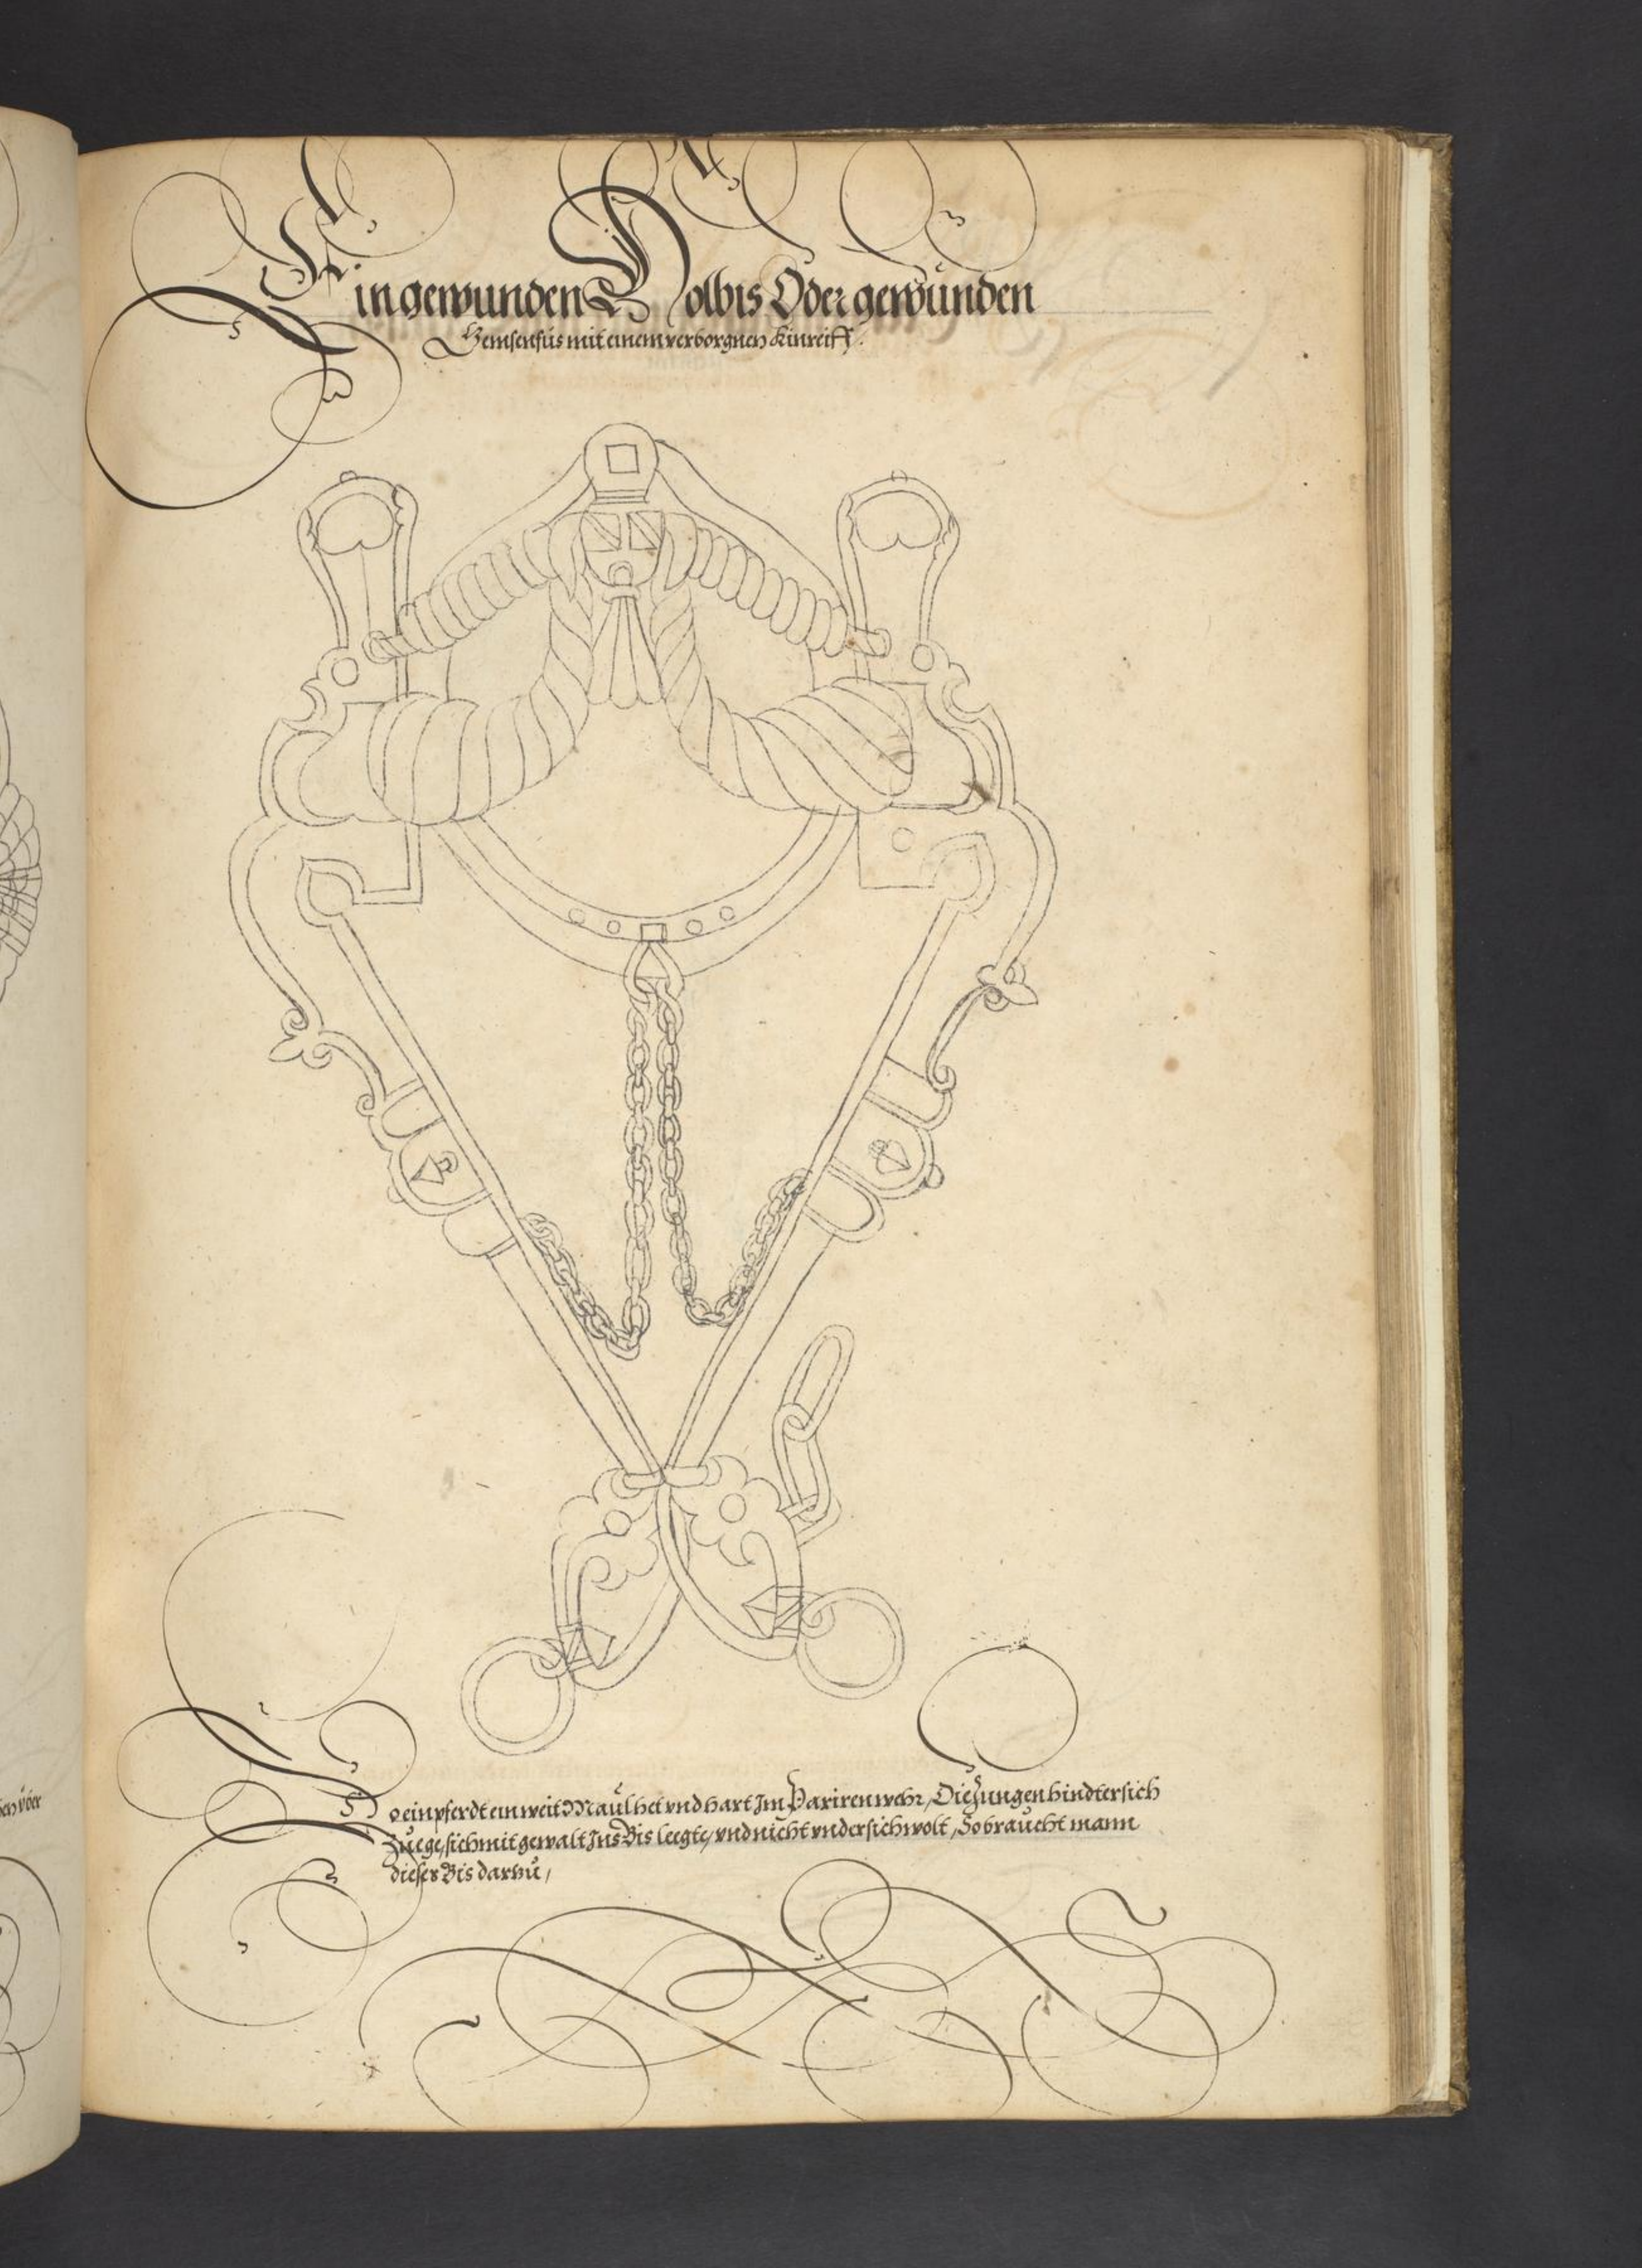 Ein gewunden Holbis Oder gewunden
Gemsenfüs mit einem verborgnen Kinreiff.
So ein pferdt ein weit Maul het vnd hart Im Pariren wehr, Die Zungen hindter sich
Zuege, sich mit gewalt Ins Bis leegte, vnd nicht vnder sich wolt, So braucht mann
dieses Bis darzu,